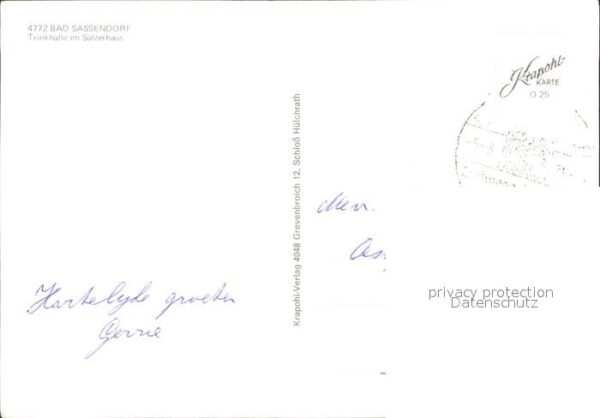 4772 BAD SASSENDORF
Trinkhalle im Sülzerhaus
Krapohl-
KARTE
O 25
Krapohl-Verlag 4048 Grevenbroich 12, Schloß Hülchrath
Hartelyke groeten
Gerrie
privacy protection
Datenschutz